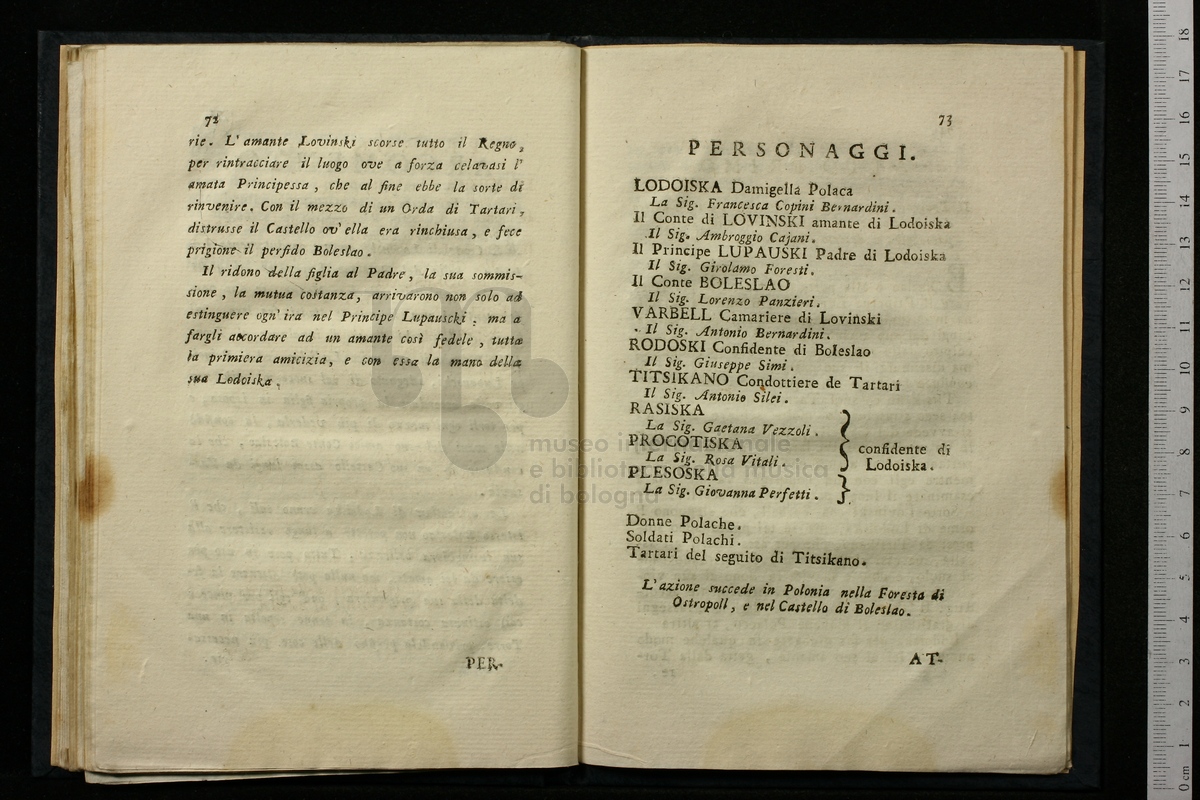 72
rie. L' amante Lovinski scorse tutto il Regno,
per rintracciare il luogo ove a forza celavasi l'
amata Principessa, che al fine ebbe la sorte di
rinvenire. Con il mezzo di un Orda di Tartari,
distrusse il Castello ov' ella era rinchiusa, e fece
prigione il perfido Boleslao.
Il ridono della figlia al Padre, la sua sommis-
sione, la mutua costanza, arrivarono non solo ad
estinguere ogn' ira nel Principe Lupauscki, ma a
fargli accordare ad un amante così fedele, tutta
la primiera amicizia, e con essa la mano della
sua Lodoiska.
PER-
73
PERSONAGGI.
LODOISKA Damigella Polaca
La Sig. Francesca Copini Bernardini.
Il Conte di LOVINSKI amante di Lodoiska
Il Sig. Ambroggio Cajani.
Il Principe LUPAUSKI Padre di Lodoiska
Il Sig. Girolamo Foresti.
Il Conte BOLESLAO
Il Sig. Lorenzo Panzieri.
VARBELL Camariere di Lovinski
Il Sig. Antonio Bernardini.
RODOSKI Confidente di Boleslao
Il Sig. Giuseppe Simi.
TITSIKANO Condottiere de Tartari
Il Sig. Antonio Silei.
RASISKA
La Sig. Gaetana Vezzoli.
PROCOTISKA
La Sig. Rosa Vitali.
PLESOSKA
La Sig. Giovanna Perfetti.
confidente di
Lodoiska.
Donne Polache.
Soldati Polachi.
Tartari del seguito di Titsikano.
L' azione succede in Polonia nella Foresta di
Ostropoll, e nel Castello di Boleslao.
AT-
museo internazionale
e biblioteca della musica
di bologna
0 cm 1 2 3 4 5 6 7 8 9 10 11 12 13 14 15 16 17 18